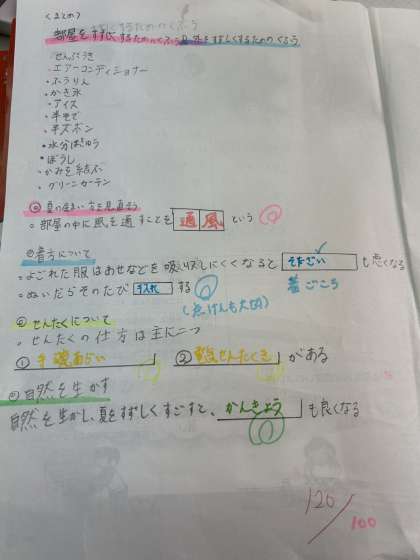 (まとめ)
部屋をすずしくするためのくふう 体をすずしくするためのくふう
・せんぷうき
・エアーコンディショナー
・ふうりん
・かき氷
・アイス
・半そで
・半ズボン
・水分ほきゅう
・ぼうし
・かみを結ぶ
・グリーンカーテン
夏の住まい方を見直そう
・部屋の中に風を通すことを 通風 という
着方について
・よごれた服はあせなどを吸いにくくなると も悪くなる
着ごこち
・ぬいだらそのたび 手入れ する
(点けんも大切)
せんたくについて
・せんたくの仕方は主に二つ
① 手洗あらい ② 電気せんたくき がある
自然を生かす
自然を生かし、夏をすずしくすごすと、かんきょう も良くなる
120/100